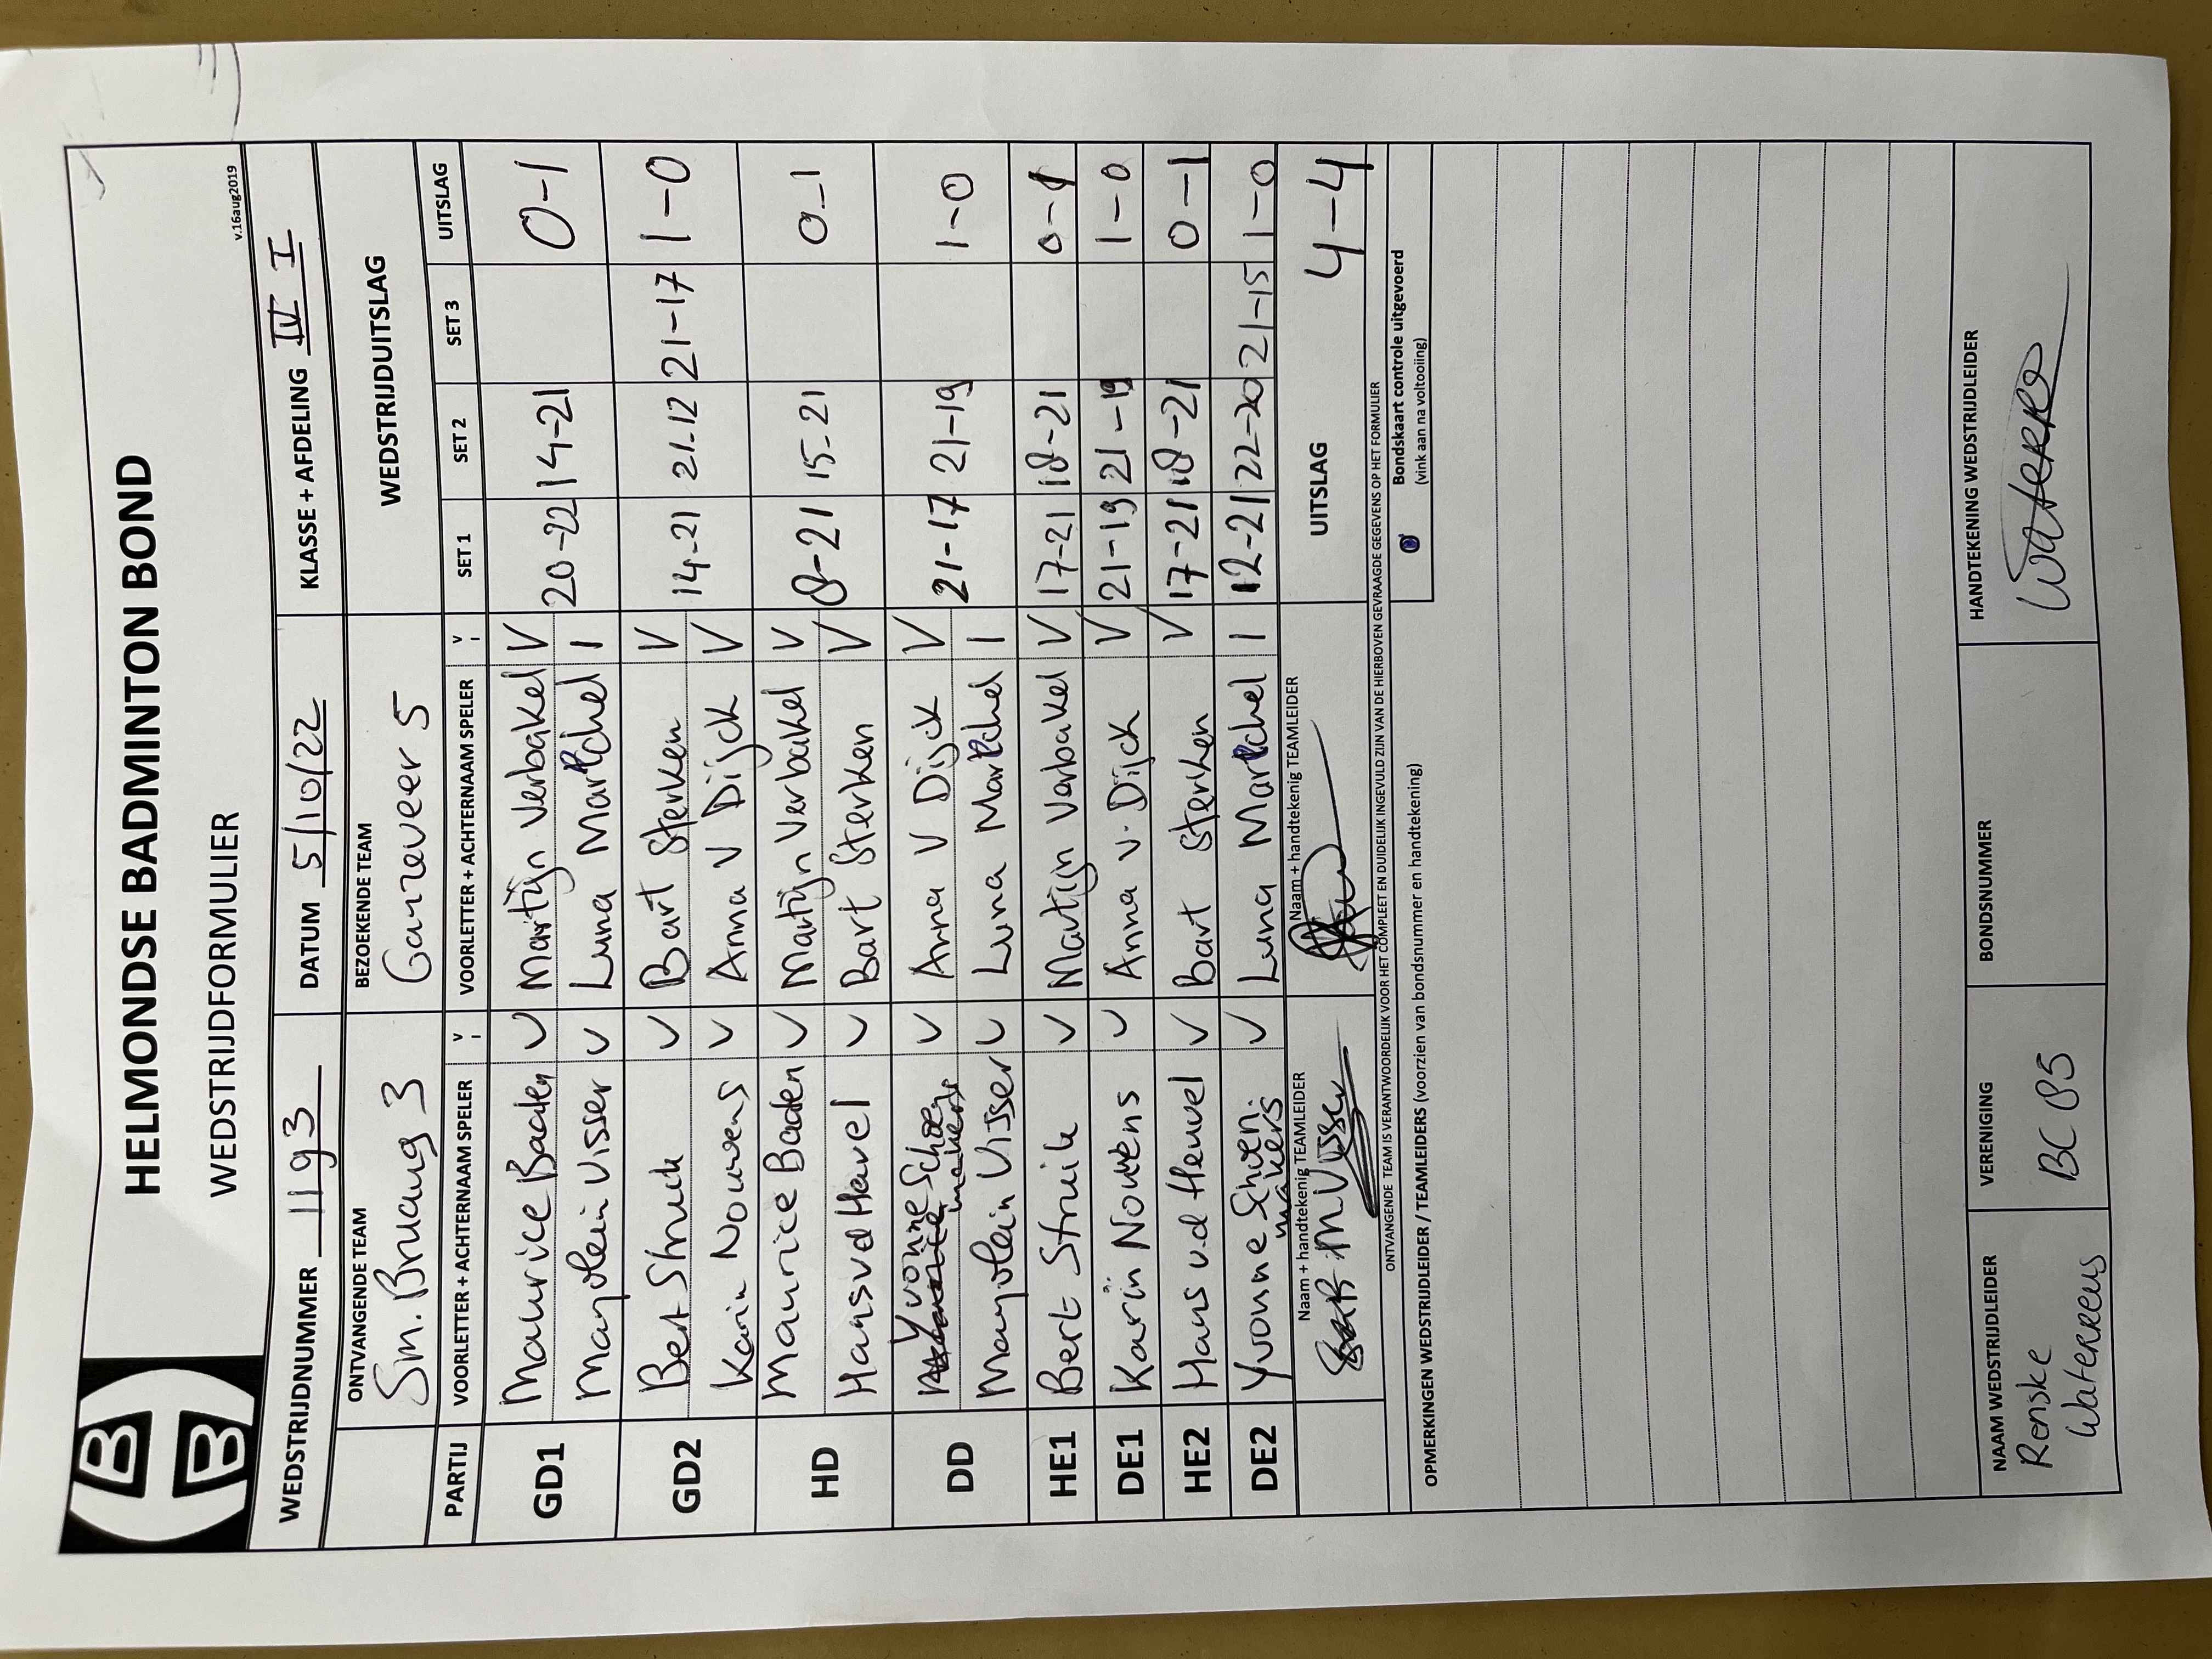 HELMONDSE BADMINTON BOND
WEDSTRIJDFORMULIER
v.16aug2019
WEDSTRIJDNUMMER 1193 DATUM 5/10/22 KLASSE + AFDELING IV I
ONTVANGENDE TEAM BEZOEKENDE TEAM WEDSTRIJDUITSLAG
Sm. Bruaug 3 Ganzeveer 5
PARTIJ VOORLETTER + ACHTERNAAM SPELER V I VOORLETTER + ACHTERNAAM SPELER V I SET 1 SET 2 SET 3 UITSLAG
GD1 Maurice Baaden V Martijn Verbakel V 20-22 14-21 0-1
Marjolein Visser V Luna Marechel I
GD2 Bert Struik V Bart Sterken V 14-21 21-12 21-17 1-0
Karin Nouwens V Anna V Dijck V
HD Maurice Baaden V Martijn Verbakel V 8-21 15-21 0-1
Hans vd Heuvel V Bart Sterken V
DD Yvonne Schoenmakers V Anna V Dijck V 21-17 21-19 1-0
Marjolein Visser V Luna Marechel I
HE1 Bert Struik V Martijn Verbakel V 17-21 18-21 0-1
DE1 Karin Nouwens V Anna v. Dijck V 21-19 21-19 1-0
HE2 Hans v.d Heuvel V Bart Sterken V 17-21 18-21 0-1
DE2 Yvonne Schoenmakers V Luna Marechel I 12-21 22-20 21-15 1-0
Naam + handtekenig TEAMLEIDER Naam + handtekenig TEAMLEIDER UITSLAG 4-4
M. Visser
ONTVANGENDE TEAM IS VERANTWOORDELIJK VOOR HET COMPLEET EN DUIDELIJK INGEVULD ZIJN VAN DE HIERBOVEN GEVRAAGDE GEGEVENS OP HET FORMULIER
Bondskaart controle uitgevoerd
(vink aan na voltooiing)
OPMERKINGEN WEDSTRIJDLEIDER / TEAMLEIDERS (voorzien van bondsnummer en handtekening)
NAAM WEDSTRIJDLEIDER VERENIGING BONDSNUMMER HANDTEKENING WEDSTRIJDLEIDER
Renske BC 85 Waterreus
Waterreus